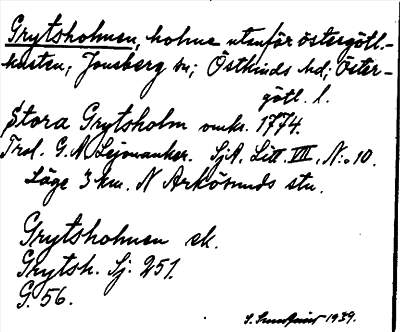 Grytsholmen, holme utanför östergötl.-
kusten; Jonsberg sn; Östkinds hd; Öster-
götl. l.
Stora Grytsholm omkr. 1774.
Trol. G. A. Lejonanker. SjA. Litt. VII, N:o 10.
Läge 3 km. N Arkösunds stn.
Grytsholmen ek.
Grytsh. Sj. 251.
G. 56.
S. 1939.